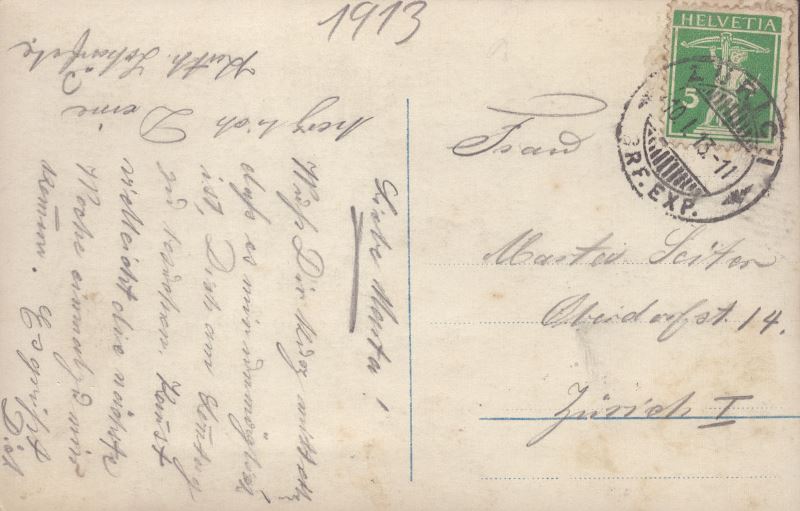 1913
HELVETIA
5
ZÜRICH
BRF. EXP.
Frau
Marta Seiter
Oberdorfst 14.
Zürich I
Liebe Marta!
Muss Dir
dass es mir unmöglich
ist, Dich am
zu besuchen. Kannst
vielleicht die nächste
Woche einmal zu mir
kommen. Es grüsst
Dich
herzlich Deine
Ruth